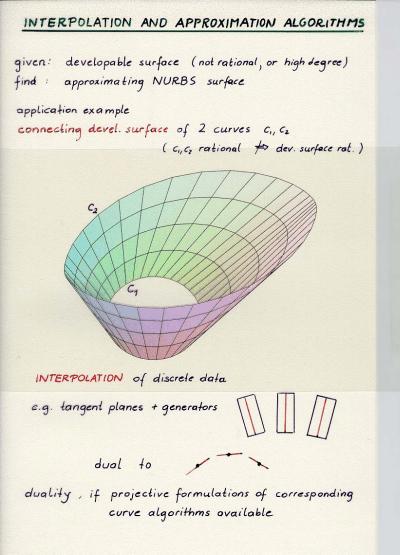 INTERPOLATION AND APPROXIMATION ALGORITHMS
given: developable surface (not rational, or high degree)
find : approximating NURBS surface
application example
connecting devel. surface of 2 curves c₁, c₂
( c₁, c₂ rational ⇏ dev. surface rat. )
C₂
C₁
INTERPOLATION of discrete data
e.g. tangent planes + generators
dual to
duality, if projective formulations of corresponding
curve algorithms available